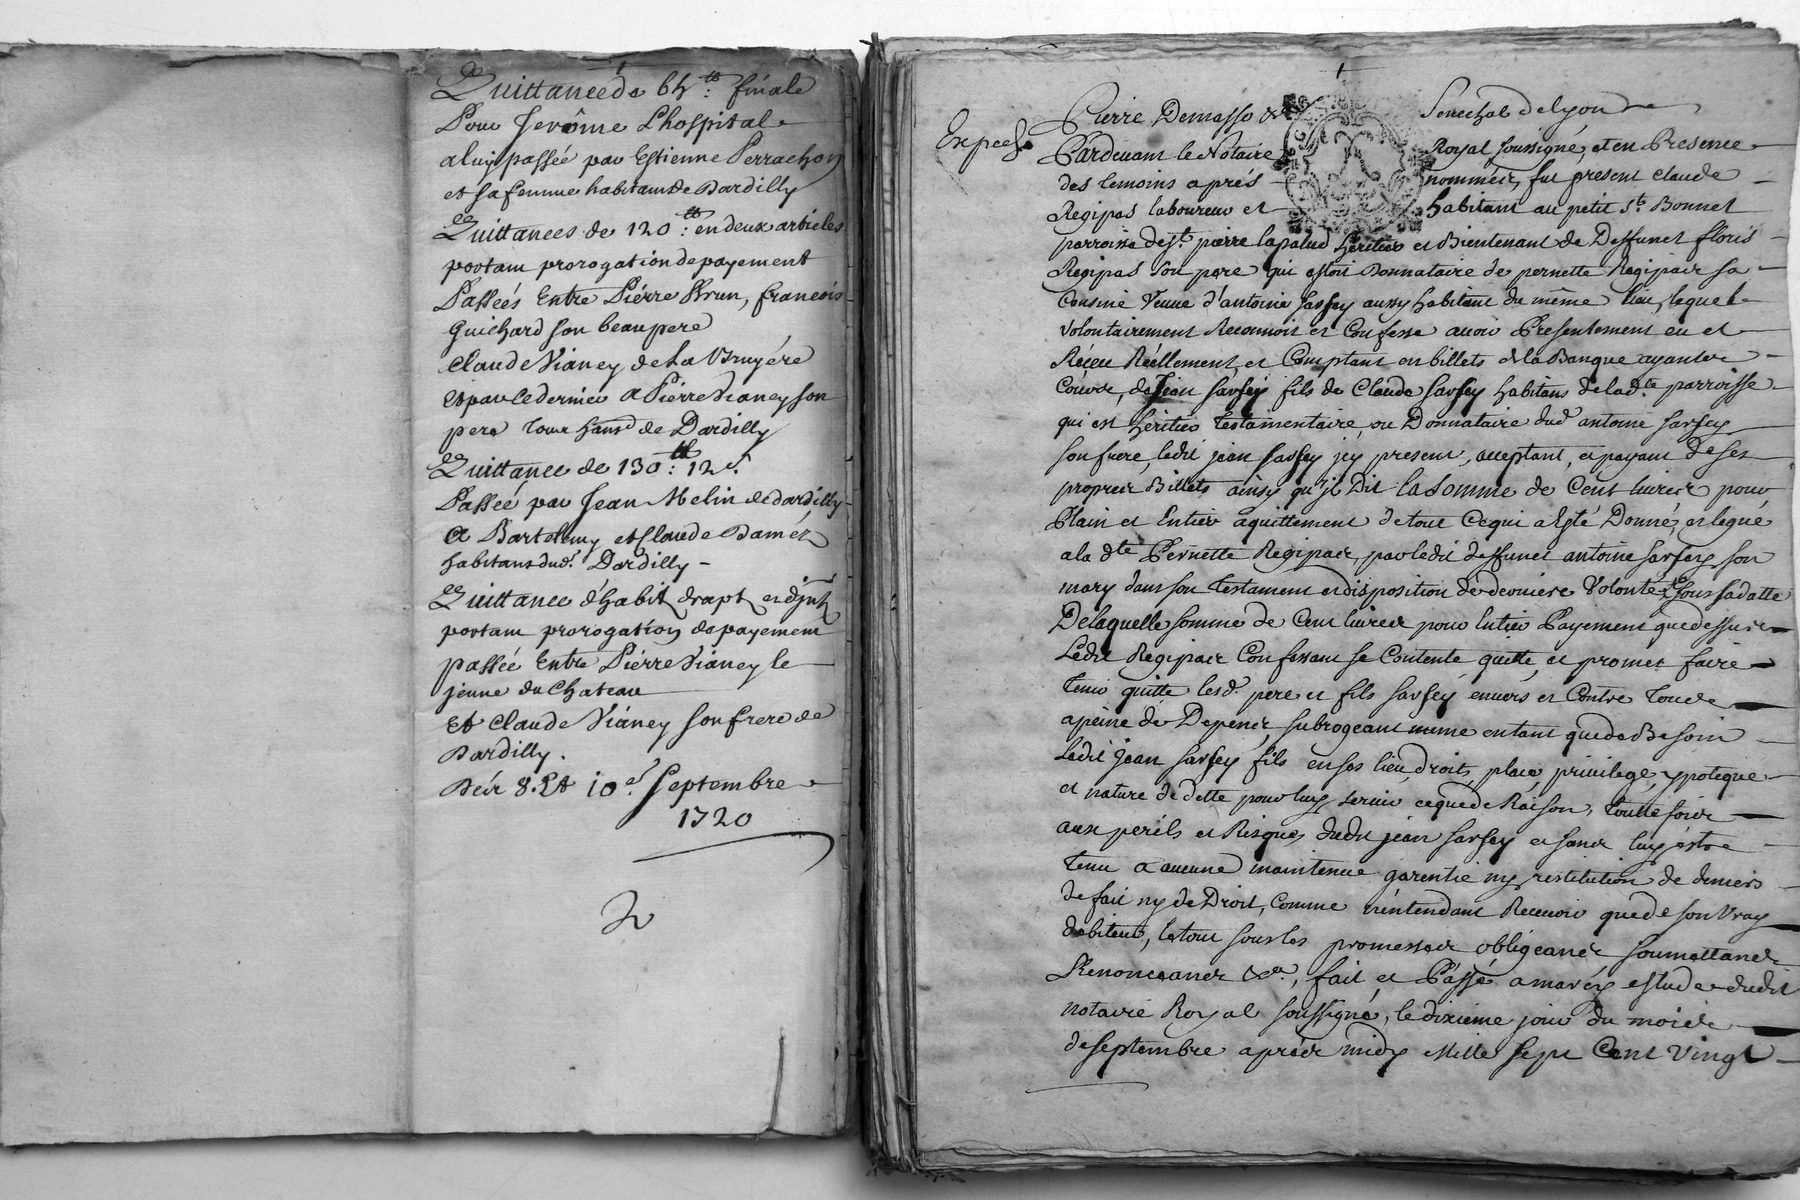 Quittance de 64 tt: finale
Pour Jerôme Lhospital
a luy passée par Estienne Perrachon
et sa femme habitans de Dardilly
Quittances de 120 tt: en deux articles
portam prorogation de payement
Passeés Entre Piérre Brun, francois
Guichard son beaupere
Claude Vianey de la Bruyére
et par le dernier a Pierre Vianey son
pere tous hans de Dardilly
Quittance de 130 tt: 12 s.
Passeé par Jean Melin de dardilly
a Bartelemy et Claude Damez
habitans dud. Dardilly -
Quittance d'habit drapt et
portam prorogation de payement
passée Entre Piérre Vianey le
jeune du Chateau
Et Claude Vianey son frere de
Dardilly.
Deś 8. Et 10e. Septembre
1720
Pierre Demasso &a Senechal de Lyon
Expeé.
Pardevant le Notaire Royal soussigné, et en Presence
des temoins aprés nommés, fut present claude
Regipas laboureur et habitant au petit St. Bonnet
parroisse de St. pierre lapalud heritier et Bientenant de Deffunct floris
Regipas son pere qui estoit Donnataire de pernette Regipas sa
Cousine Veuve d'antoine Sarsey aussy habitant du même lieu, lequel
volontairement Reconnoit et Confesse avoir Presentement eu et
Réceu Réellement, et Comptant en billets de la Banque ayant
Coúrs, de Jean Sarsey fils de Claude Sarsey habitans de lad.te parroisse
qui est héritier testamentaire, ou Donnataire dud antoine Sarsey
son frere, ledit jean Sarsey jcy present, acceptant, et payant de ses
propres Billets ainsy qu'jl Dit la Somme de Cent livres pour
Plain et Entier aquittement de tout Ce qui a Esté Donné, et legué
a la dte Pernette Regipas, par ledit deffunct antoine Sarsey son
mary dans son testament et disposition de derniere Volonté sous sa datte
De laquelle somme de Cent livres pour Entier Payement que dessus
Ledit Regipas Confessant se Contente quitte, et promet faire
tenir quitte lesd. pere et fils Sarsey envers et Contre tous
a peine de Depens, subrogeant même en tant que de Besoin
Ledit Jean Sarsey fils en ses lieu, droits, place, privilege, ypoteque
et nature de dette pour luy servir ce que de Raison, touttefois
aux perils et Risques dudit jean Sarsey et sans luy éstre
tenu a aucune maintenue garentie ny restitution de deniers
de fait ny de Droit, Comme n'éntendant Recevoir que de son Vray
debiteur, le tout sous les promesses obligeances soumettances
Renonceances &a., fait et Passé a estude dudit
notaire Royal soussigné, le dixieme jour du mois
de septembre aprés midy Mille Sept Cent Vingt